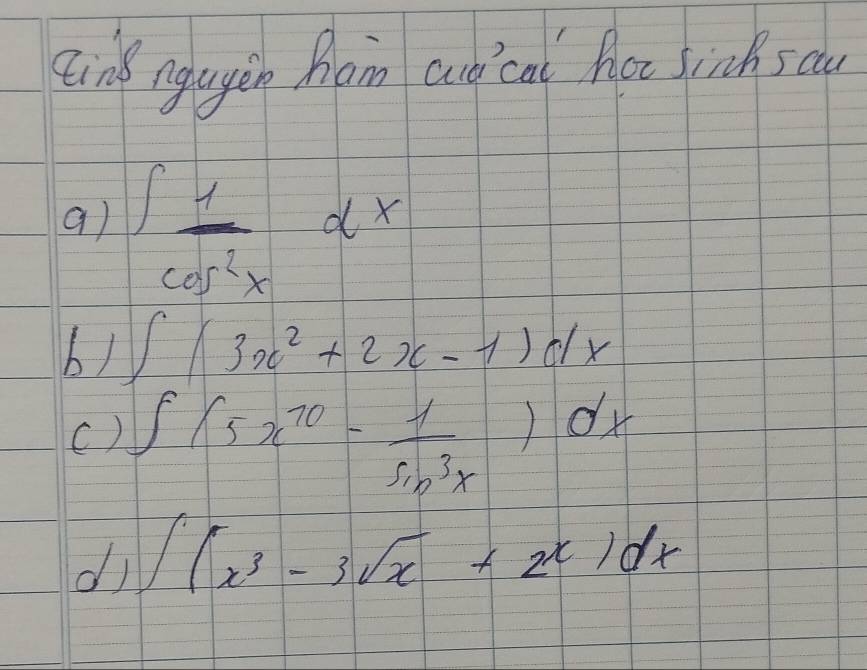 Tính nguyên hàm của các học sinh sau
a) ∫ 1/cos²x dx
b) ∫ (3x² + 2x - 1) dx
c) ∫ (5x¹⁰ - 1/sin³x) dx
d) ∫ (x³ - 3√x + 2ˣ) dx